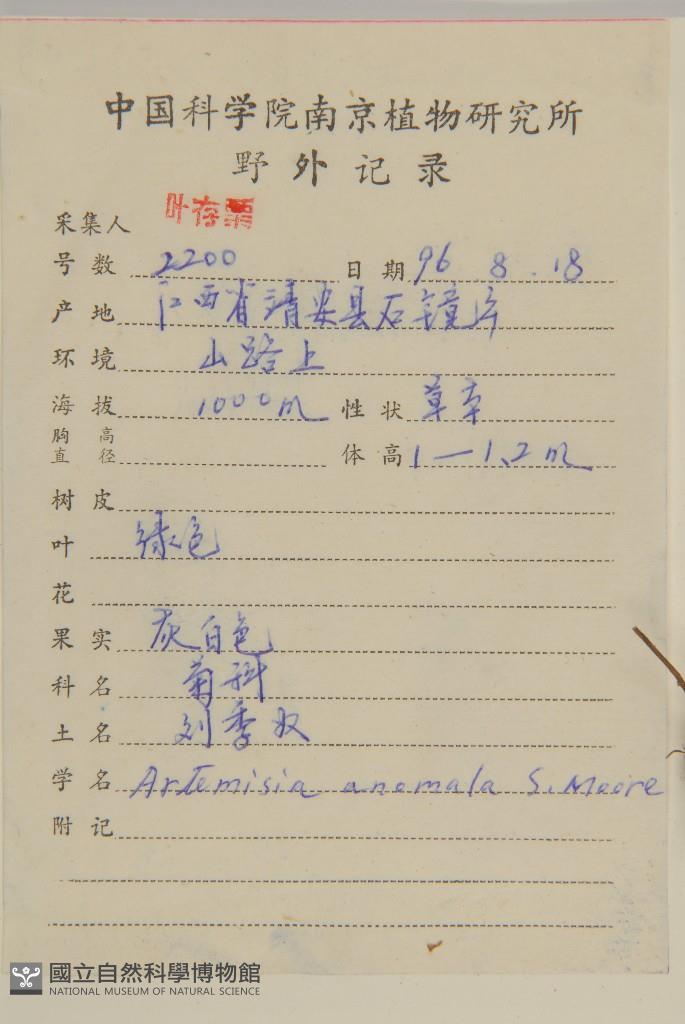 中国科学院南京植物研究所
野外记录
采集人 叶存粟
号数 2200 日期 96 8.18
产地 江西省靖安县石镜
环境 山路上
海拔 1000m 性状 草本
胸高直径 体高 1—1.2m
树皮
叶 绿色
花
果实 灰白色
科名 菊科
土名 刘季奴
学名 Artemisia anomala S. Moore
附记
國立自然科學博物館
NATIONAL MUSEUM OF NATURAL SCIENCE